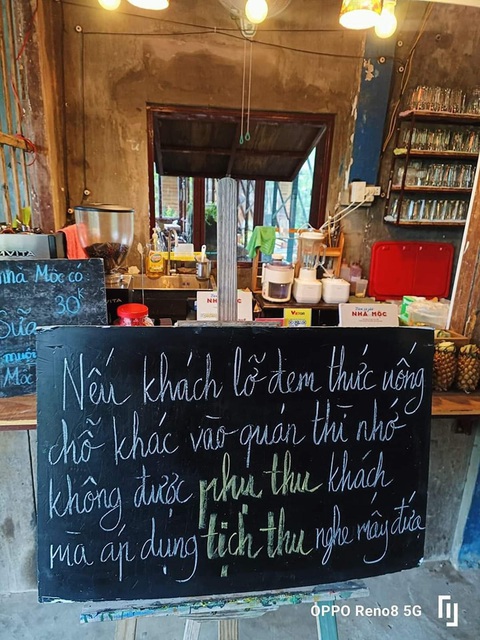 AVITA
nhà Mộc có
30K
Sữa
muối
Mộc
NHÀ MỘC
NHÀ MỘC
Nếu khách lỡ đem thức uống
chỗ khác vào quán thì nhớ
không được phụ thu khách
mà áp dụng tịch thu nghe mấy đứa
OPPO Reno8 5G